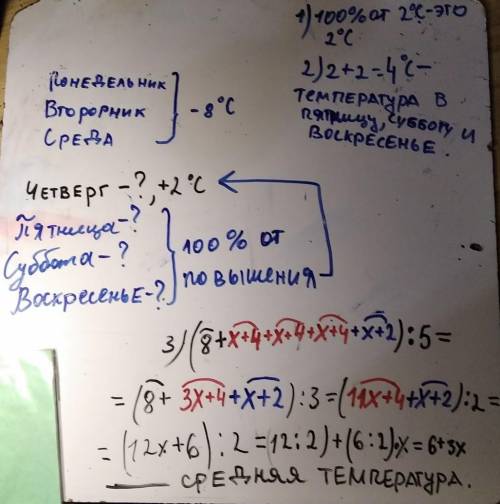 1) 100% от 2°С-это
2°С
2) 2+2=4°С-
температура в
пятницу, субботу и
воскресенье.
Понедельник
Вторник
Среда
-8°С
Четверг -?, +2°С
Пятница-?
Суббота-?
Воскресенье-?
100% от
повышения
3) (8+x+4+x+4+x+4+x+2):5=
=(8+3x+4+x+2):3=(11x+4+x+2):2=
=(12x+6):2=(12:2)+(6:2)•x=6+3x
— средняя температура.